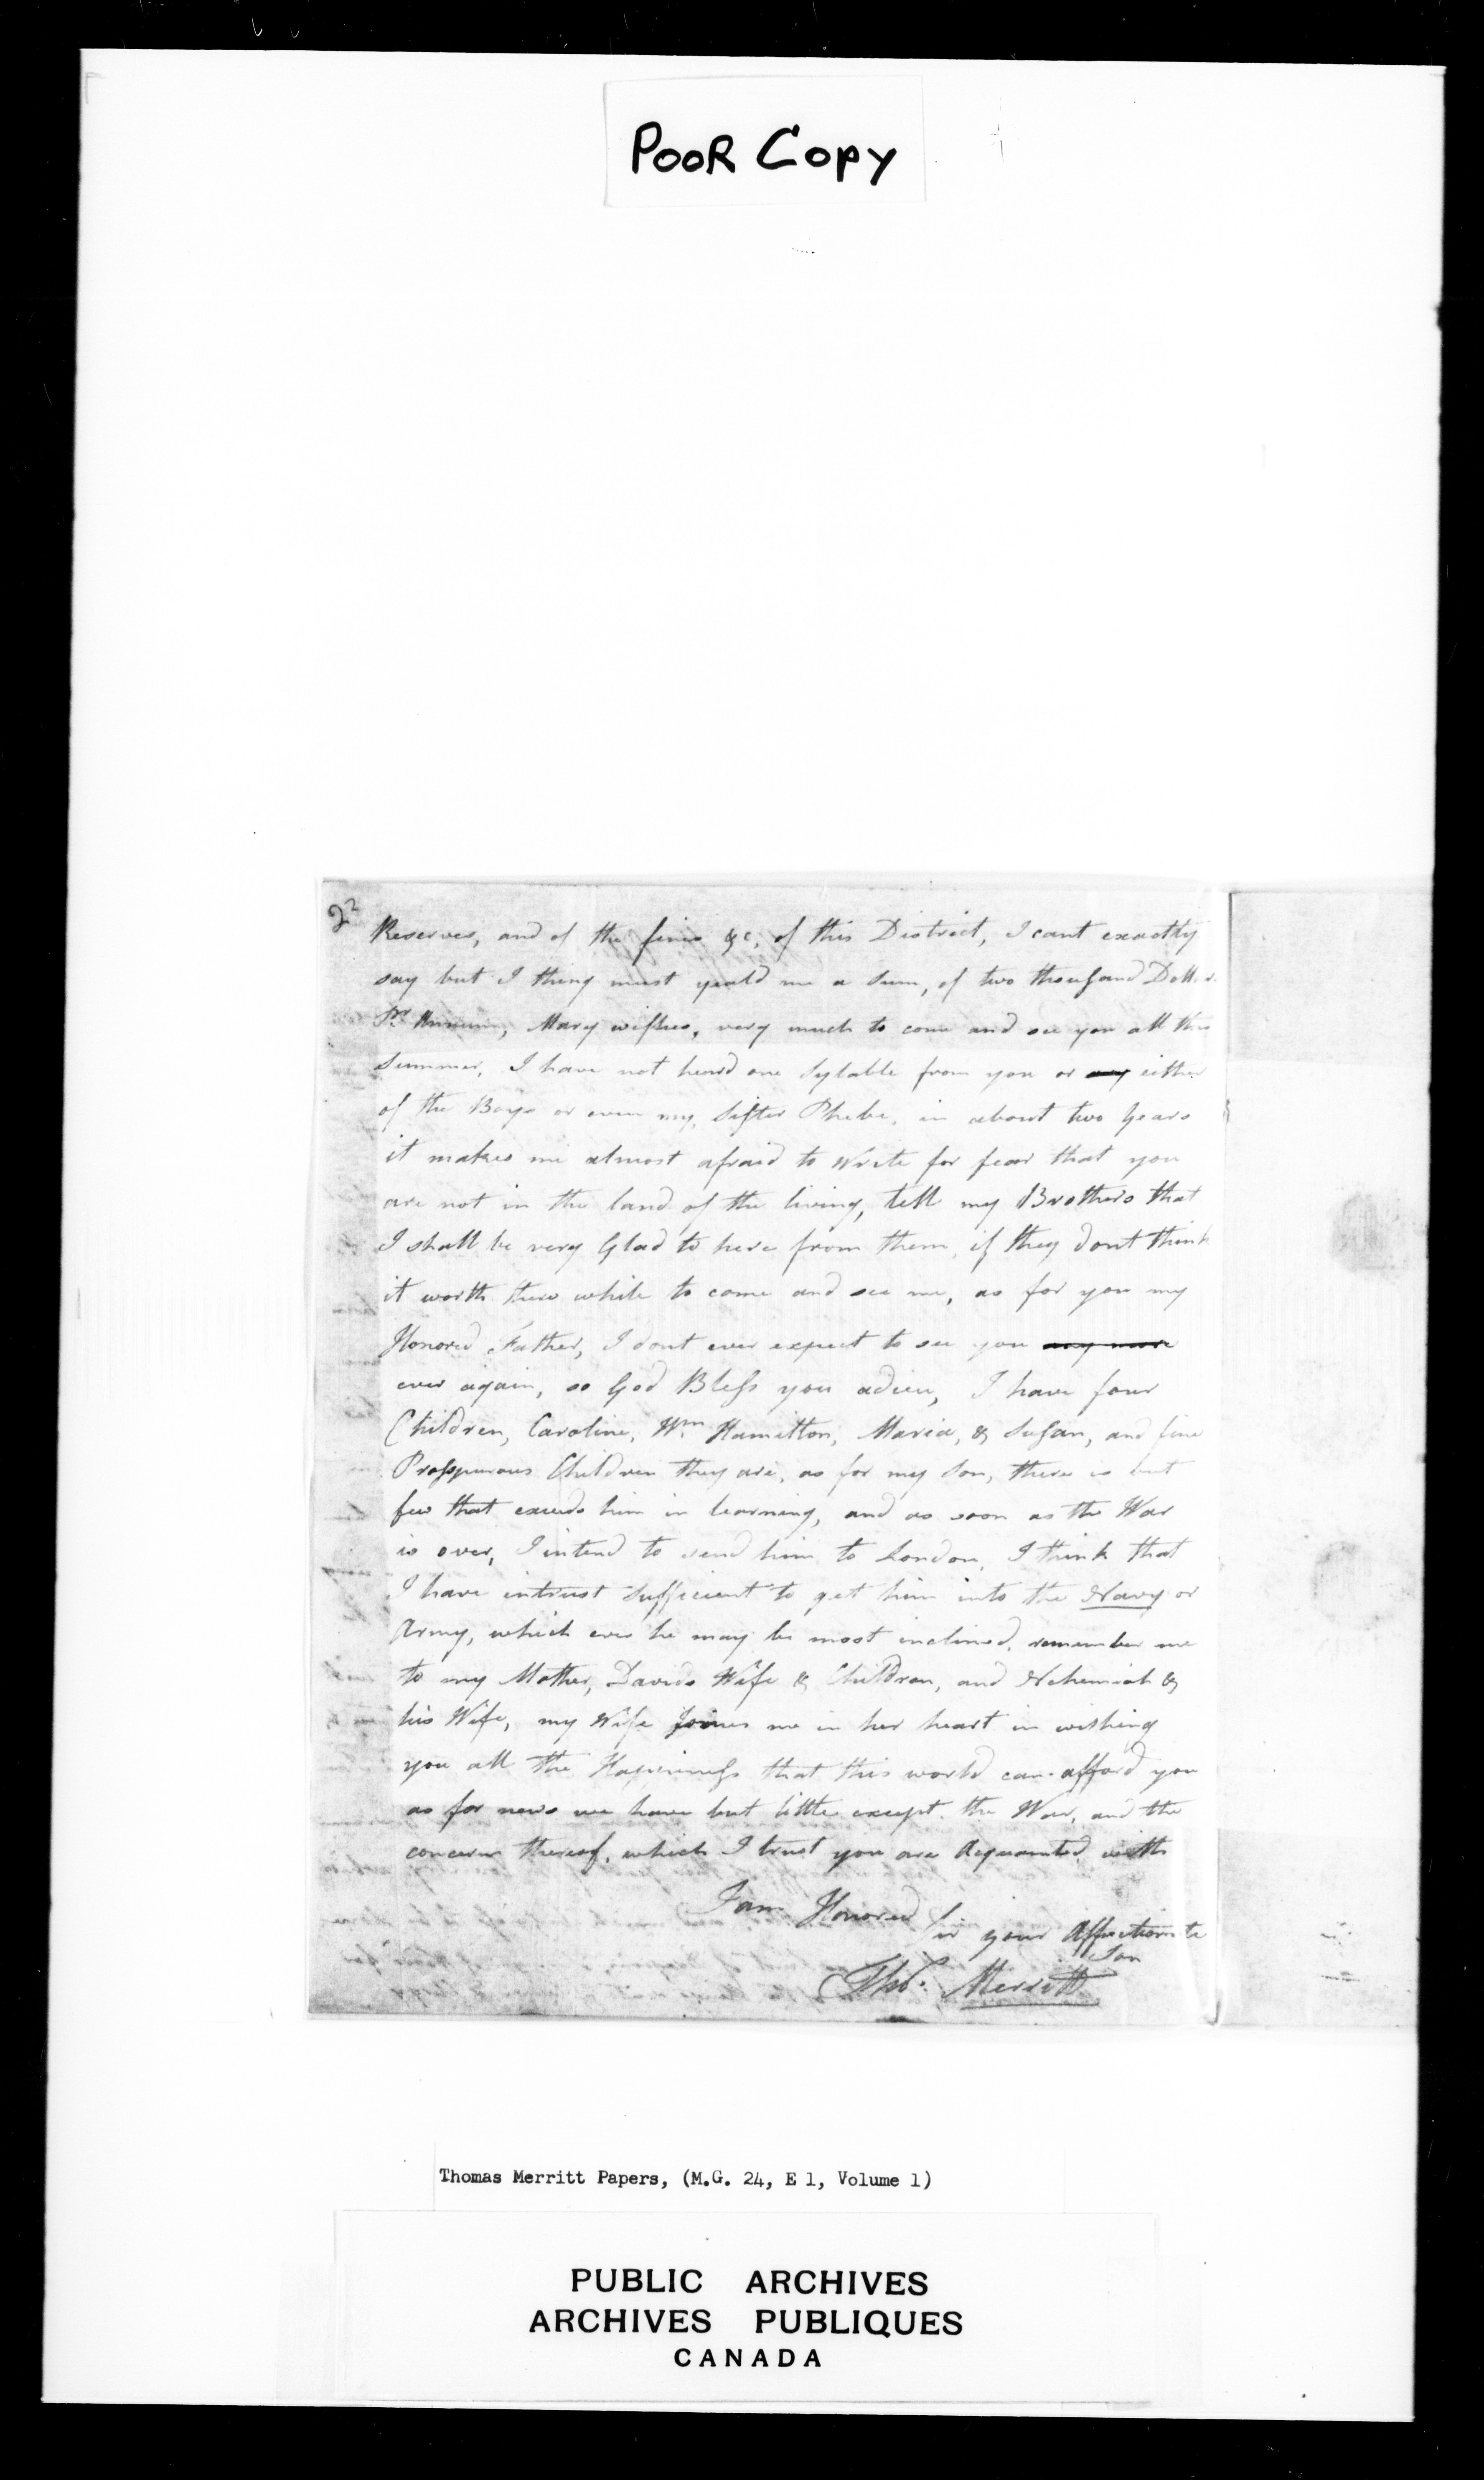 POOR COPY
2
Reserves, and of the fines &c, of this District, I cant exactly
say but I thing must yeald me a Sum, of two thousand Doll
Pr Annum, Mary wishes, very much to come and see you all this
Summer, I have not heard one Sylable from you or any either
of the Boys or even my, Sister Phebe, in about two years
it makes me almost afraid to write for fear that you
are not in the land of the living, tell my Brothers that
I shall be very Glad to here from them, if they dont think
it worth there while to come and see me, as for you my
Honored Father, I dont ever expect to see you any more
ever again, so God Bless you adieu, I have four
Children, Caroline, Wm Hamilton, Maria, & Susan, and fine
Prossperous Children they are, as for my Son, there is but
few that exceeds him in learning, and as soon as the War
is over, I intend to send him to London, I think that
I have intrust sufficient to get him into the Navy or
Army, which ever he may be most inclined, remember me
to my Mother, Davids Wife & Children, and Nehemiah &
his Wife, my Wife Joines me in her heart in wishing
you all the Happiness that this world can afford you
as for news we have but little except the War, and the
concerns thereof, which I trust you are Aquainted with
I am Honored Sir your Affectionate
Son
Thos. Merritt
Thomas Merritt Papers, (M.G. 24, E 1, Volume 1)
PUBLIC ARCHIVES
ARCHIVES PUBLIQUES
CANADA